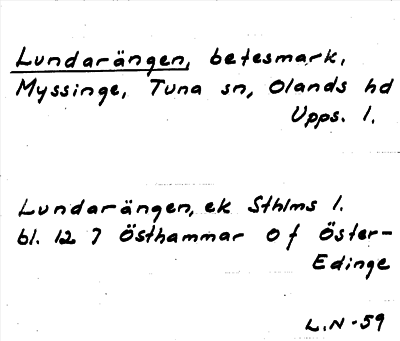 Lundarängen, betesmark,
Myssinge, Tuna sn, Olands hd
Upps. l.
Lundarängen, ek Sthlms l.
bl. 12 7 Östhammar o f Öster-
Edinge
L.N-59